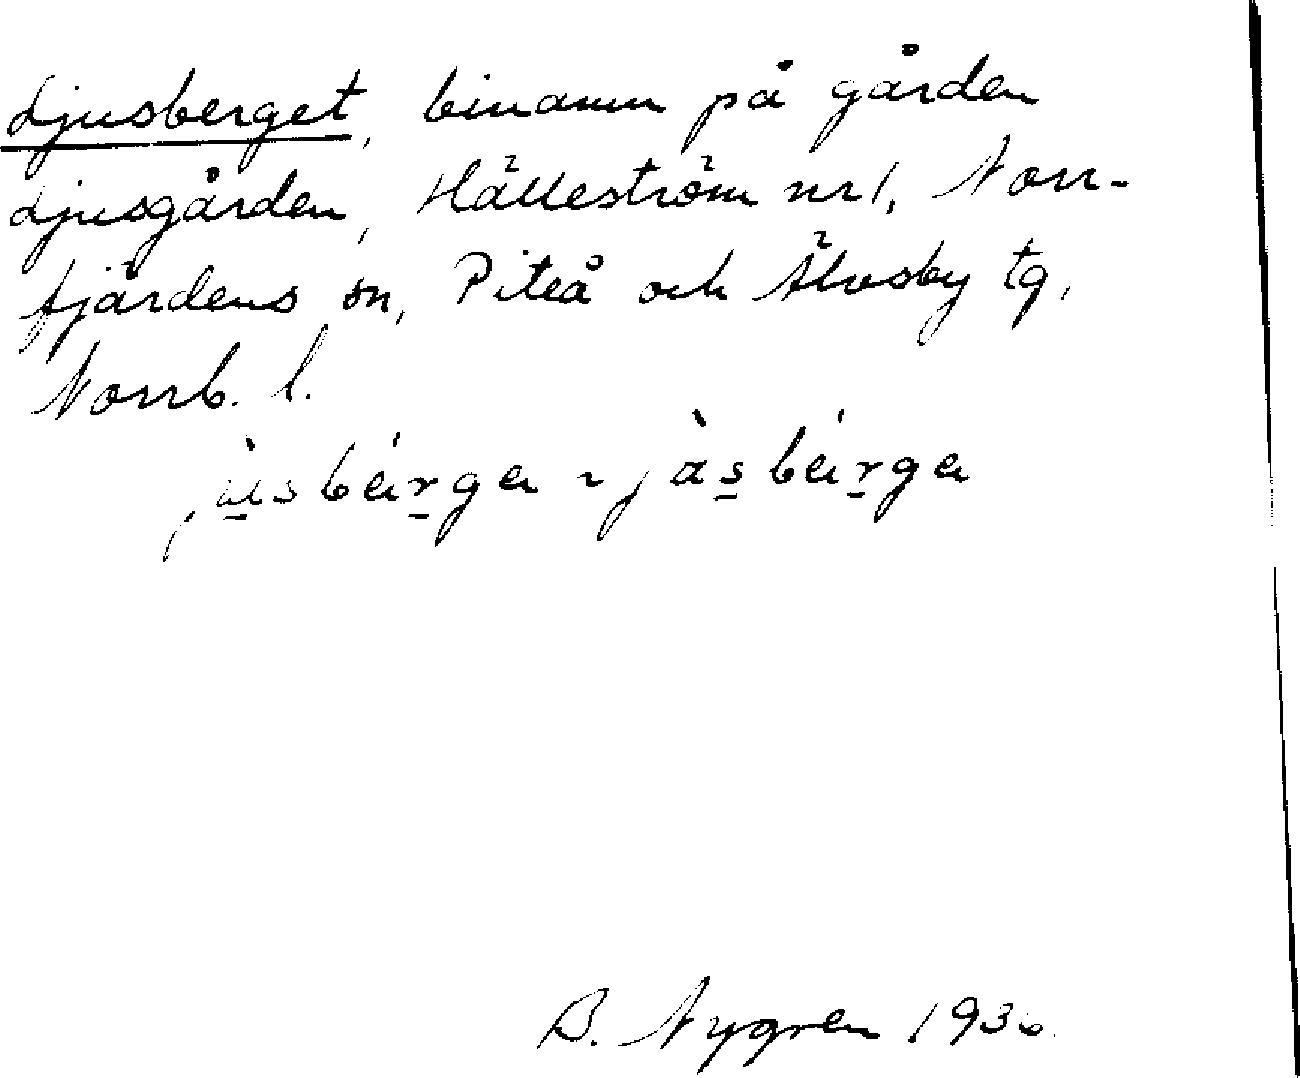 Ljusberget, binamn på gården
Ljusgården, Hälleström nr 1, Norr-
fjärdens sn, Piteå och Älvsby tg,
Norrb. l.
B. Nygren 1930.